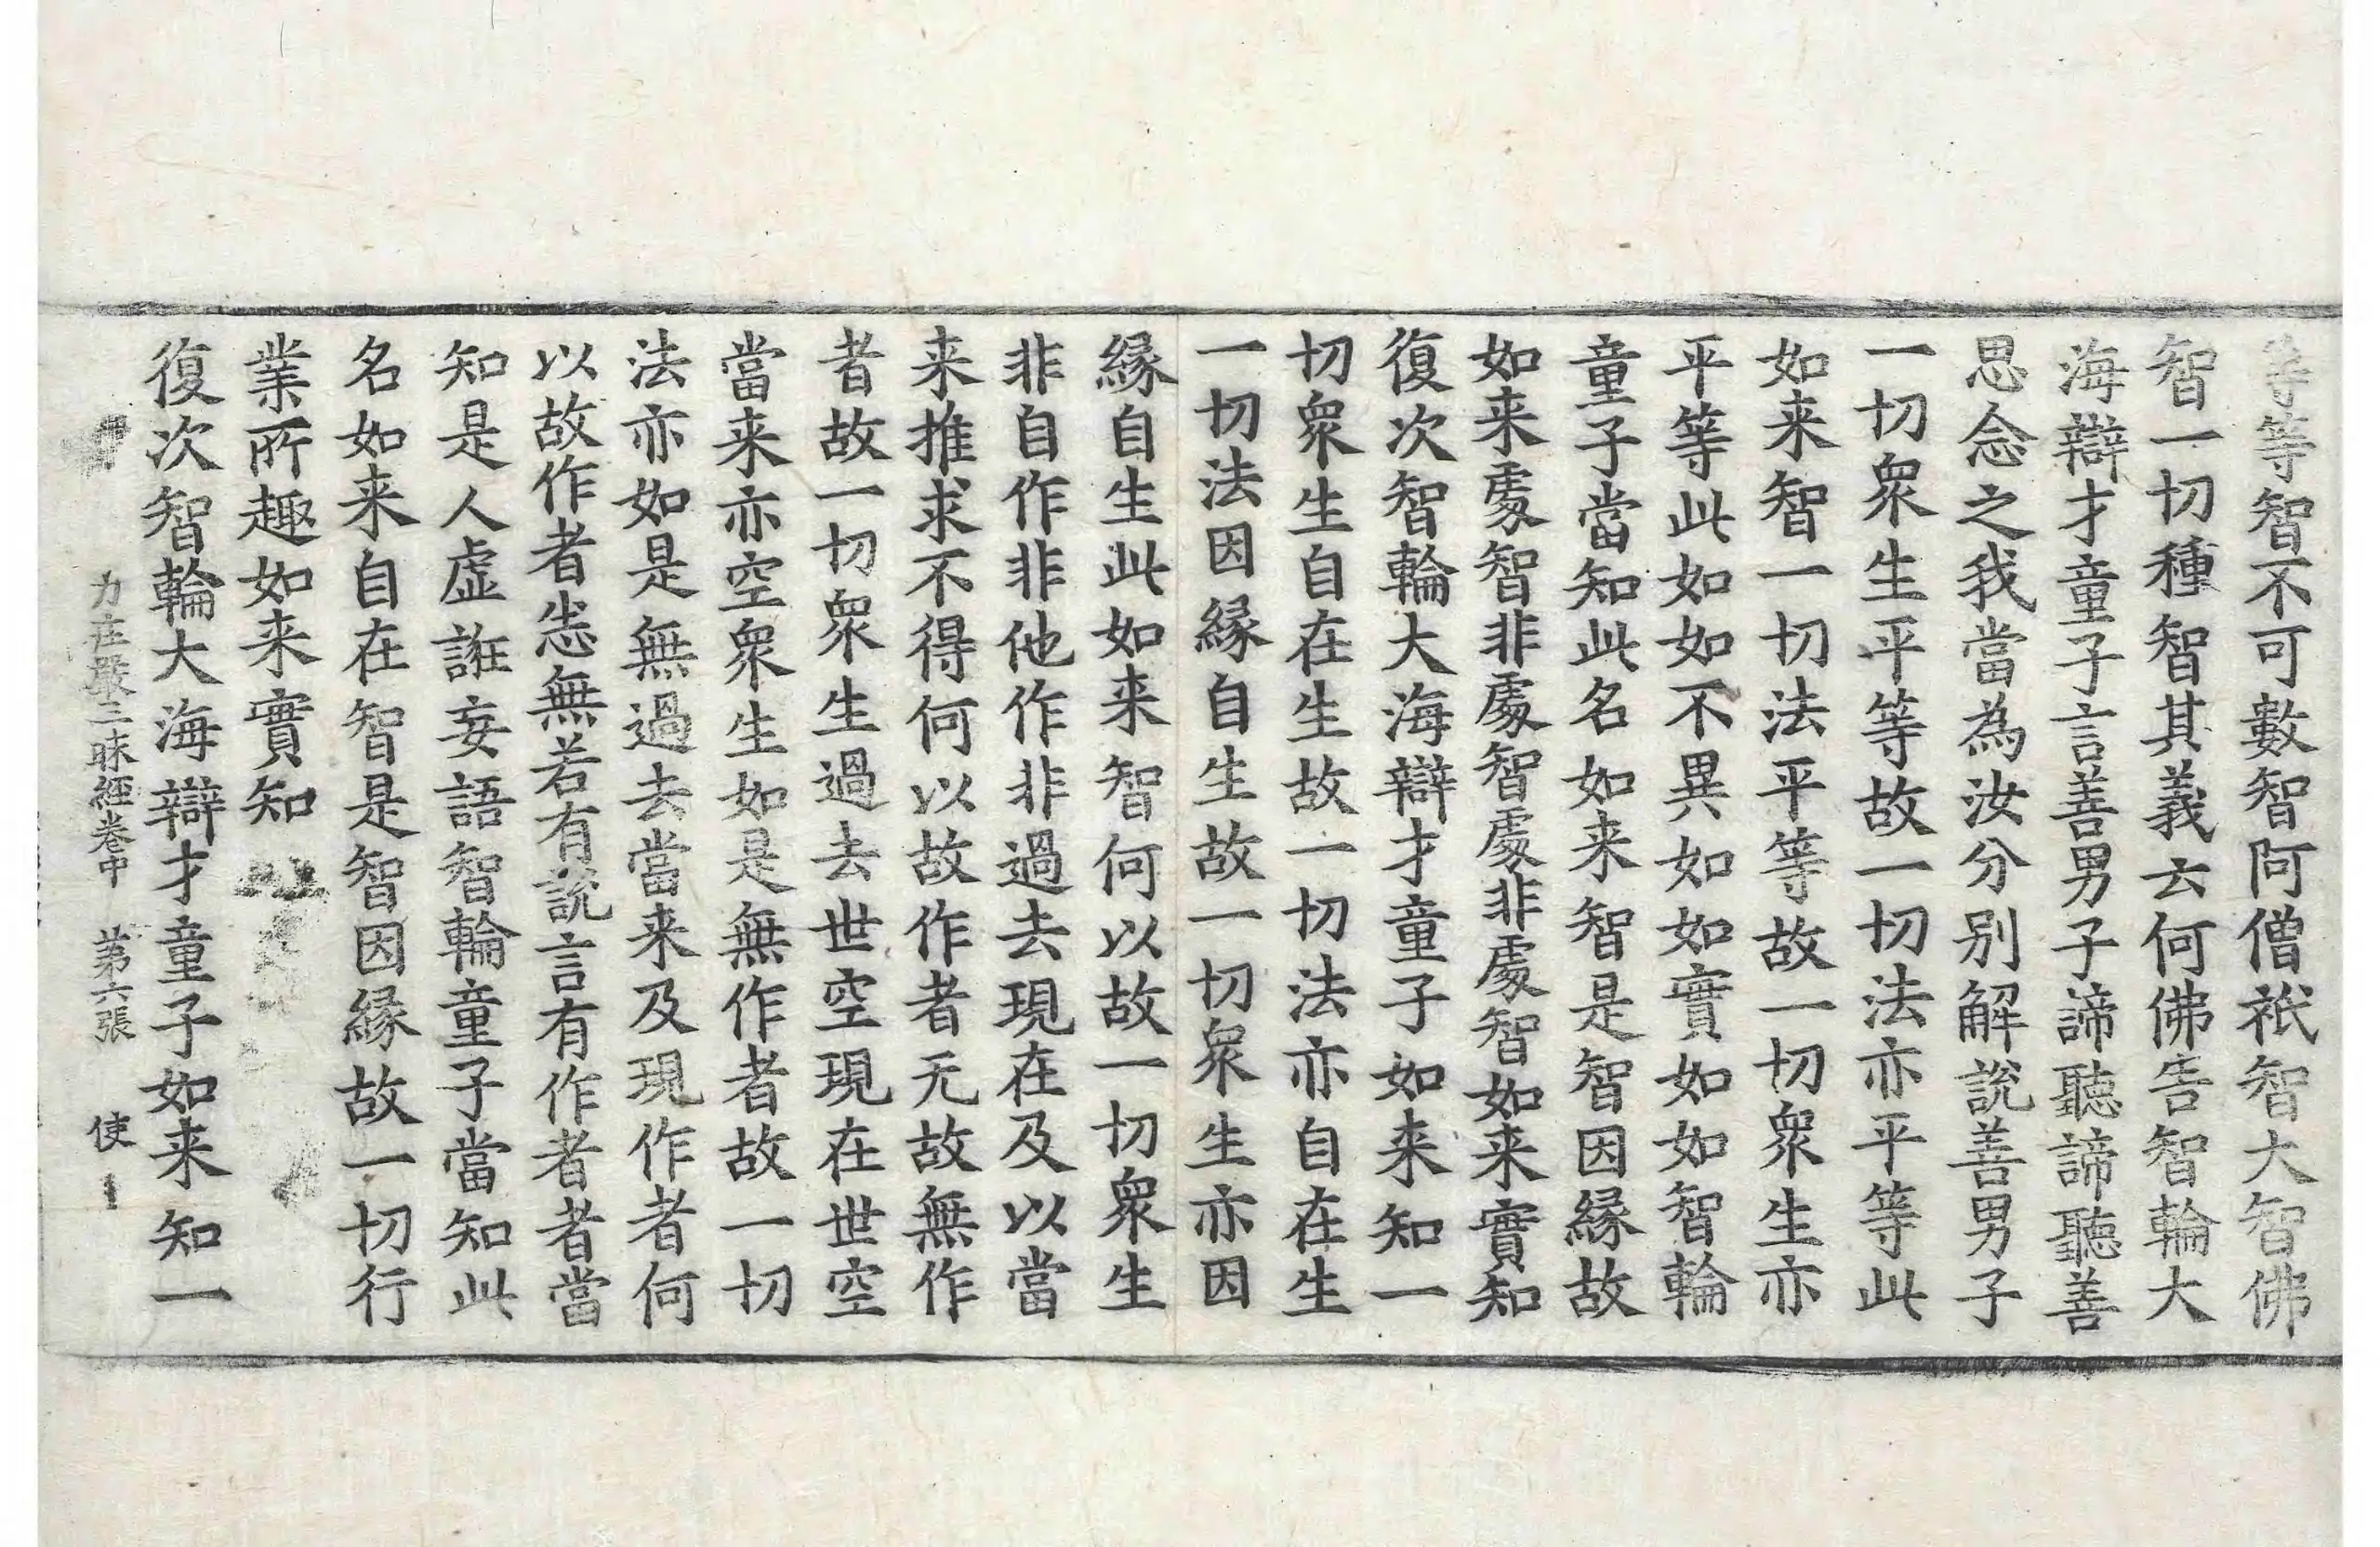 等等智不可數智阿僧祇智大智佛
智一切種智其義云何佛告智輪大
海辯才童子言善男子諦聽諦聽善
思念之我當為汝分別解說善男子
一切眾生平等故一切法亦平等此
如来智一切法平等故一切眾生亦
平等此如如不異如如實如如智輪
童子當知此名如来智是智因縁故
如来處智非處智處非處智如来實知
復次智輪大海辯才童子如来知一
切眾生自在生故一切法亦自在生
一切法因縁自生故一切眾生亦因
縁自生此如来智何以故一切眾生
非自作非他作非過去現在及以當
来推求不得何以故作者无故無作
者故一切眾生過去世空現在世空
當来亦空眾生如是無作者故一切
法亦如是無過去當来及現作者何
以故作者悉無若有說言有作者者當
知是人虛誑妄語智輪童子當知此
名如来自在智是智因縁故一切行
業所趣如来實知
復次智輪大海辯才童子如来知一
力莊嚴三昧經卷中 第六張 使